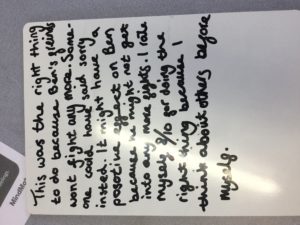 This was the right thing
to do because Ben's friends
wont fight any more. Some-
one could have said sorry
insted. It might have a
posotive effect on Ben
because he might not get
into any more fights. I rate
myself 9/10 for doing the
right thing because I
think about others before
myself.
MindMo